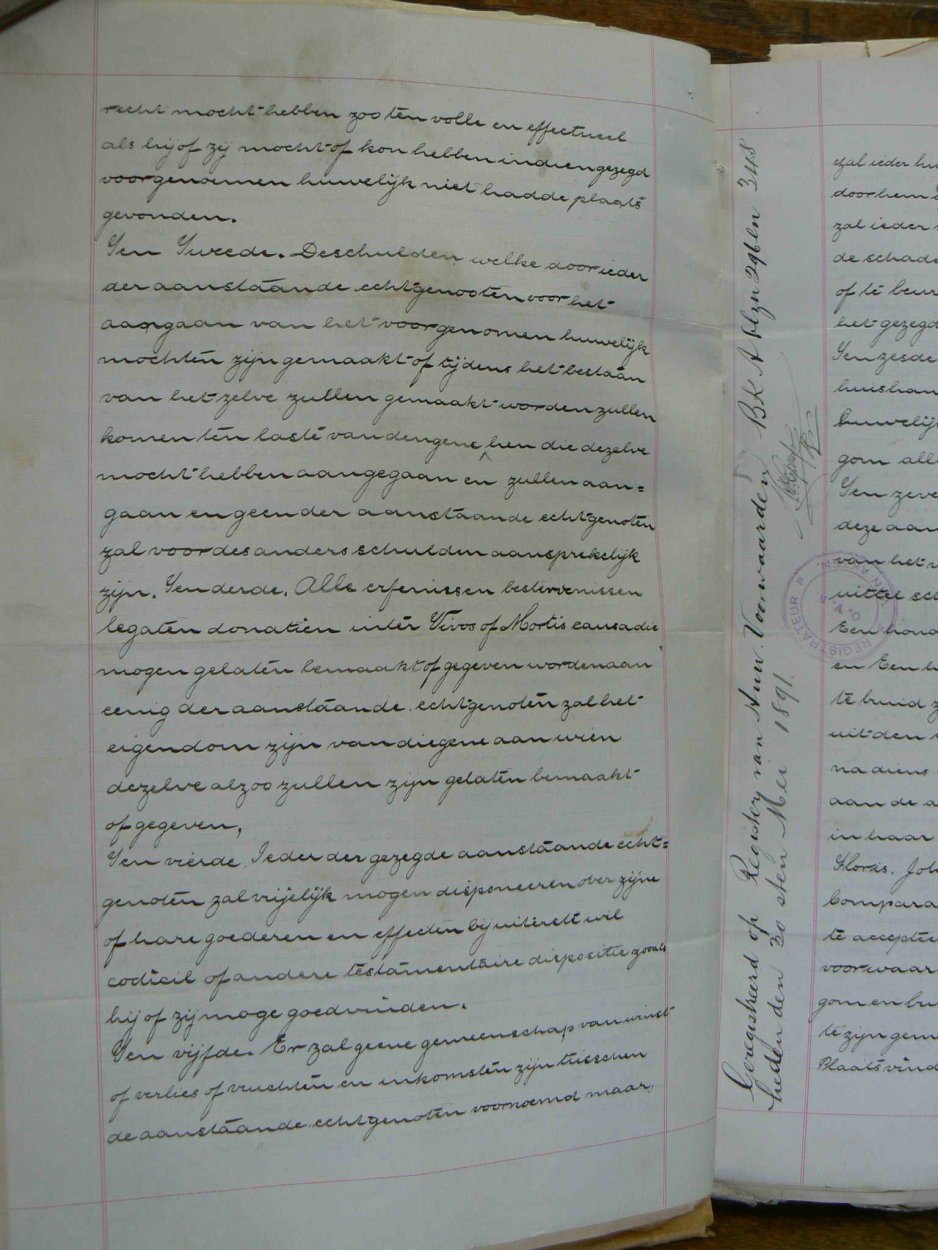 recht mocht hebben zoo ten volle en effectueel
als hij of zij mocht of kon hebben indien gezegd
voorgenoemen huwelijk niet hadde plaats
gevonden.
Ten Tweede. De schulden welke door ieder
der aanstäande echtgenooten voor het
aangaan van het voorgenomen huwelijk
mochten zijn gemaakt of tijdens het bestaan
van het zelve zullen gemaakt worden zullen
komen ten laste van dengene hen die dezelve
mocht hebben aangegaan en zullen aan=
gaan en geen der aanstäande echtgenoten
zal voor des anders schulden aansprekelijk
zijn. Ten derde. Alle erfenissen bestervenissen
legaten donatien inter Vivos of Mortis causa die
mogen gelaten bemaakt of gegeven worden aan
eenig der aanstäande echtgenoten zal het
eigendom zijn van diegene aan wien
dezelve alzoo zullen zijn gelaten bemaakt
of gegeven,
Ten vierde. Ieder der gezegde aanstäande echt=
genoten zal vrijelijk mogen disponeeren over zijne
of hare goederen en effecten bij uiterste wil
codicil of andere testamentaire dispositie zooals
hij of zij moge goedvinden.
Ten vijfde. Er zal geene gemeenschap van winst
of verlies of vruchten en inkomsten zijn tusschen
de aanstäande echtgenoten voornoemd maar
Geregistreerd op Register van Huw. Voorwaarden BK A blzn 296 en 348
heden den 30 sten Mei 1891.
REGISTRATEUR
zal ieder
door hem
zal ieder
de schade
of te
het gezegd
Ten zesde
huwelijk
gom alle
Ten zeve
deze aan
van het
uitte
Een hond
en Een
te
uit den
na diens
aan de a
in haar
Floris. Joh
Compara
te acceptee
voorwaar
gom en
te zijn gem
Plaats vind